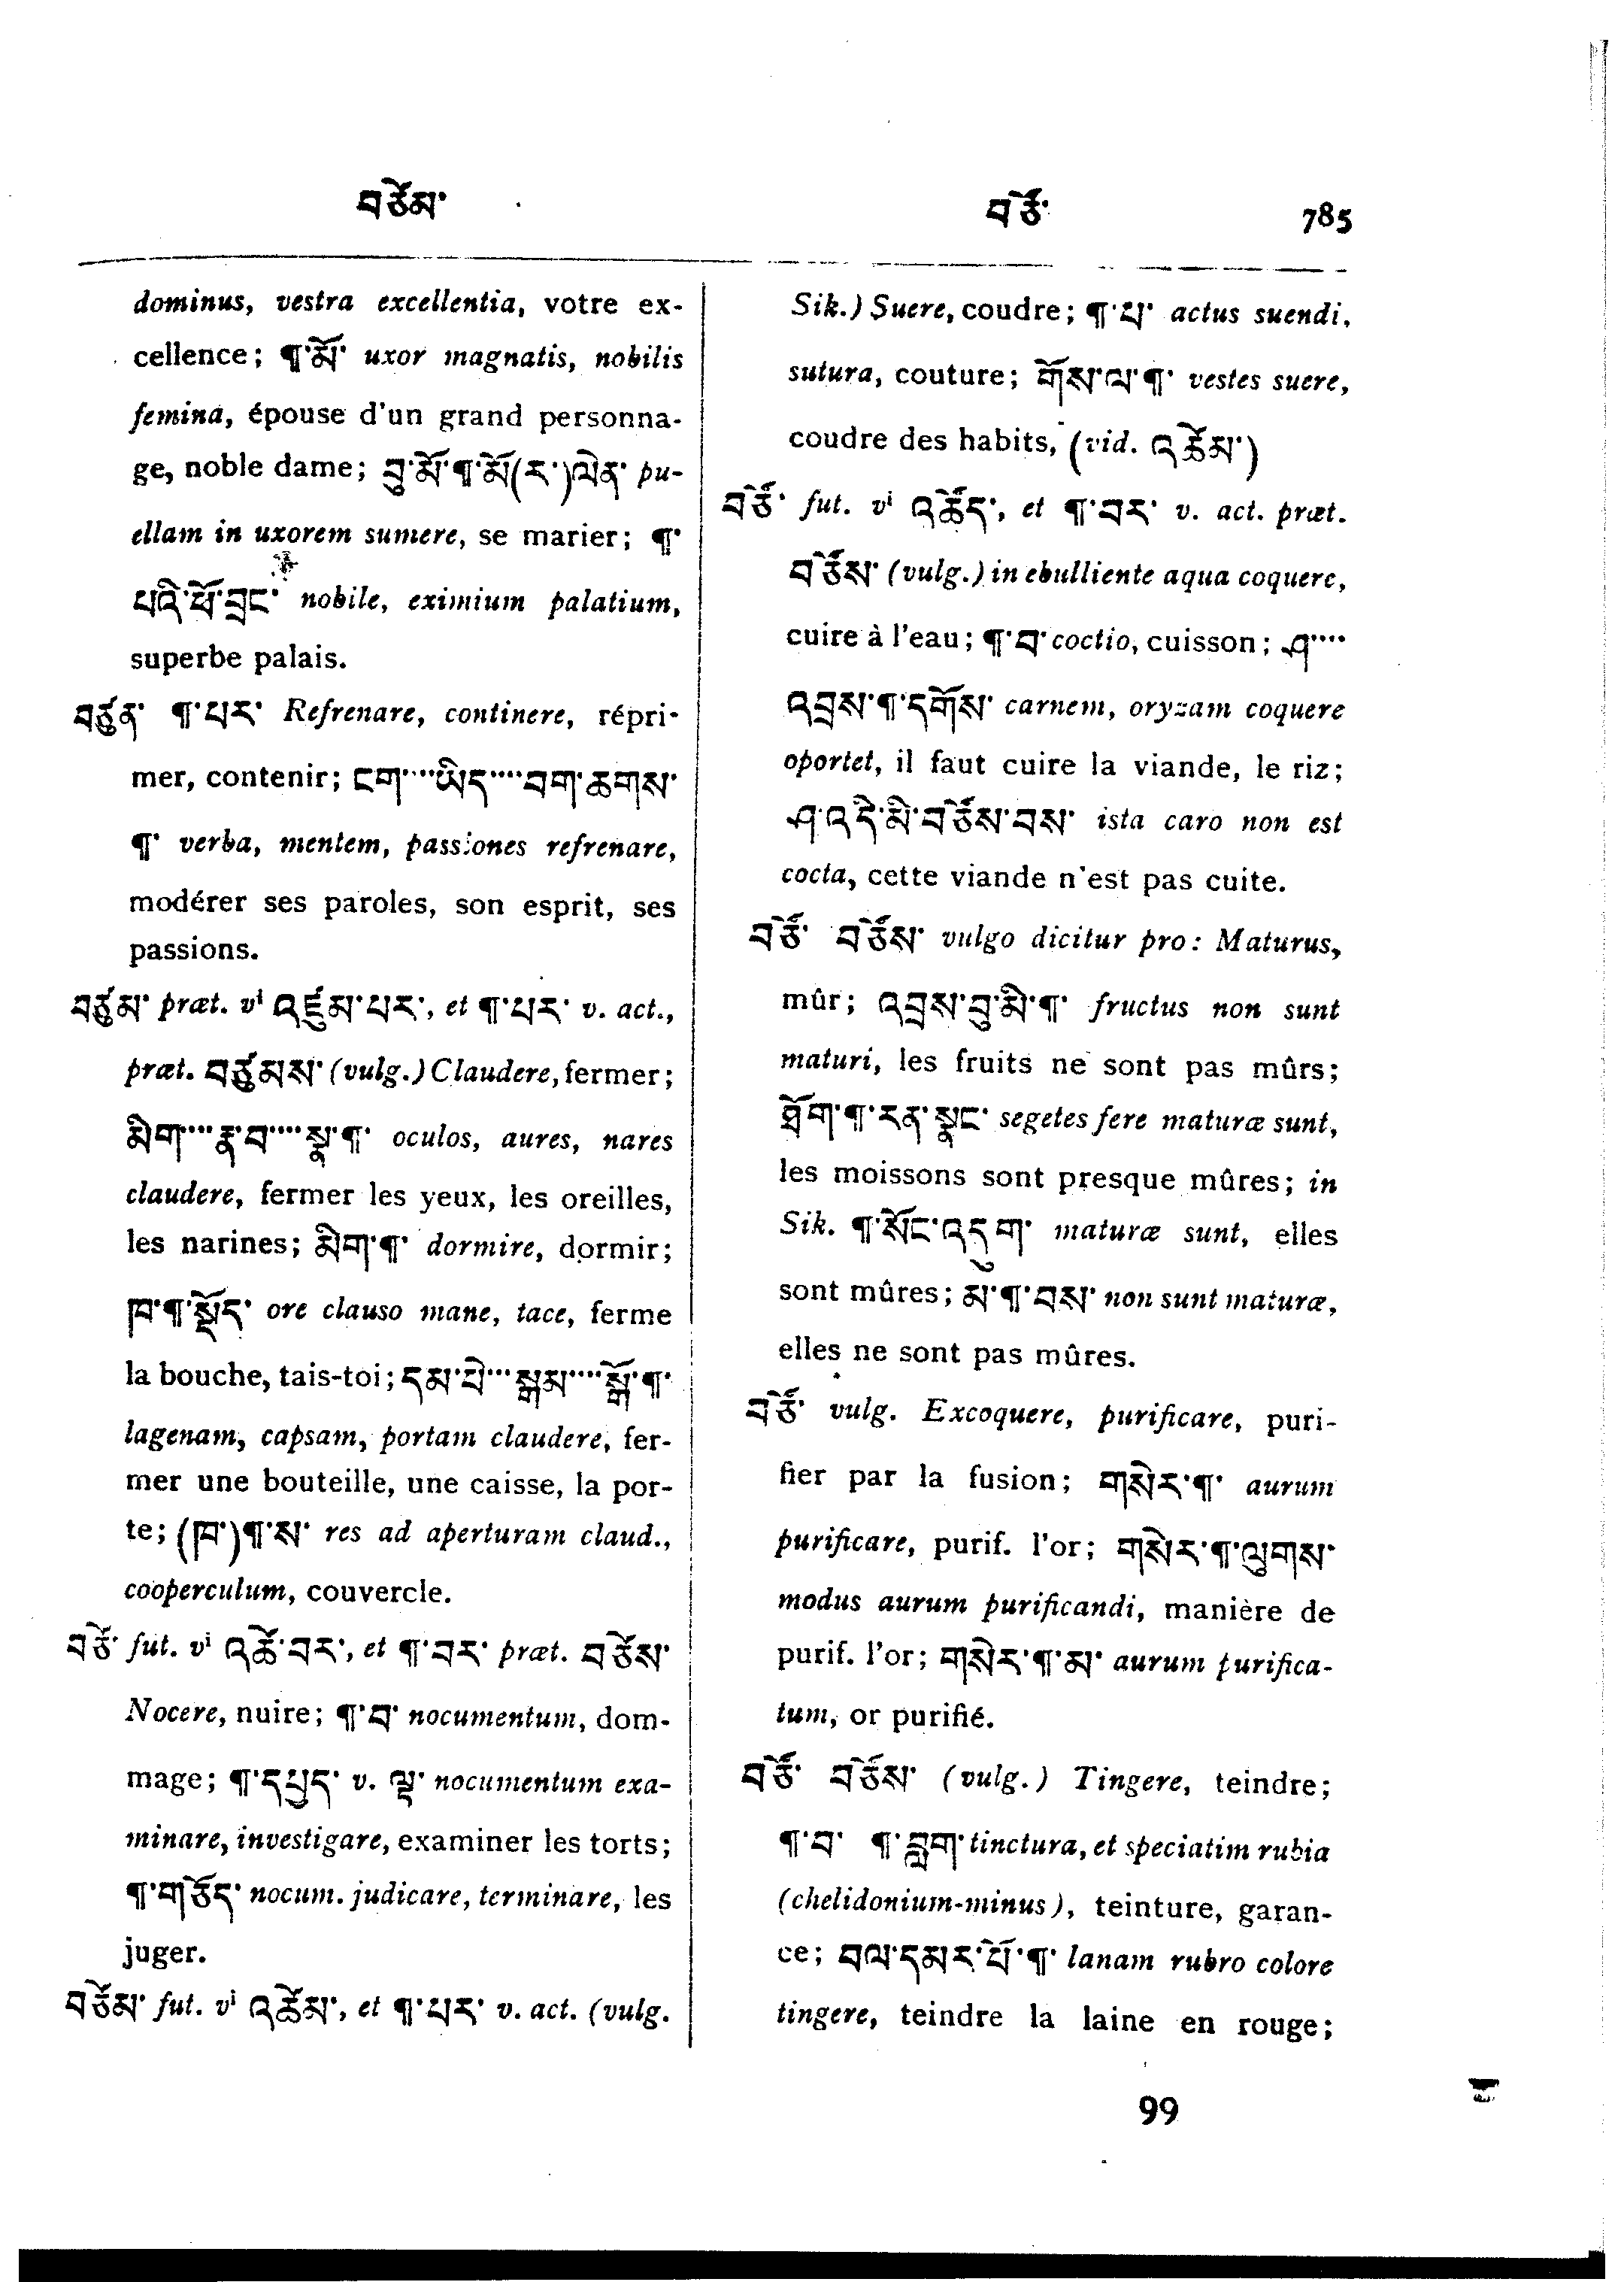 བཙེམ་
བཙོ་ 785
dominus, vestra excellentia, votre ex-
cellence; ¶་མོ་ uxor magnatis, nobilis
femina, épouse d'un grand personna-
ge, noble dame; བུ་མོ་¶་མོ(ར་)ལེན་ pu-
ellam in uxorem sumere, se marier; ¶་
པའི་ཕོ་བྲང་ nobile, eximium palatium,
superbe palais.
བཙུན་ ¶་པར་ Refrenare, continere, répri-
mer, contenir; ངག་···ཡིད་···བག་ཆགས་
¶་ verba, mentem, passiones refrenare,
modérer ses paroles, son esprit, ses
passions.
བཙུམ་ præt. vⁱ འཛུམ་པར་, et ¶་པར་ v. act.,
præt. བཙུམས་ (vulg.) Claudere, fermer;
མིག་···རྣ་བ་···སྣ་¶་ oculos, aures, nares
claudere, fermer les yeux, les oreilles,
les narines; མིག་¶་ dormire, dormir;
ཁ་¶་སྡོད་ ore clauso mane, tace, ferme
la bouche, tais-toi; དམ་པེ་··སྒམ་···སྒོ་¶་
lagenam, capsam, portam claudere, fer-
mer une bouteille, une caisse, la por-
te; (ཁ་)¶་ས་ res ad aperturam claud.,
cooperculum, couvercle.
བཙེ་ fut. vⁱ འཚེ་བར་, et ¶་བར་ præt. བཙེས་
Nocere, nuire; ¶་བ་ nocumentum, dom-
mage; ¶་དཔྱད་ v. ལྟ་ nocumentum exa-
minare, investigare, examiner les torts;
¶་གཅོད་ nocum. judicare, terminare, les
juger.
བཙེམ་ fut. vⁱ འཚེམ་, et ¶་པར་ v. act. (vulg.
Sik.) Suere, coudre; ¶་པ་ actus suendi,
sutura, couture; གོས་ལ་¶་ vestes suere,
coudre des habits, (vid. འཚེམ་)
བཙོ་ fut. vⁱ འཚོད་, et ¶་བར་ v. act. præt.
བཙོས་ (vulg.) in ebulliente aqua coquere,
cuire à l'eau; ¶་བ་ coctio, cuisson; ཤ་···
འབྲས་¶་དགོས་ carnem, oryzam coquere
oportet, il faut cuire la viande, le riz;
ཤ་འདི་མི་བཙོས་བས་ ista caro non est
cocta, cette viande n'est pas cuite.
བཙོ་ བཙོས་ vulgo dicitur pro: Maturus,
mûr; འབྲས་བུ་མི་¶་ fructus non sunt
maturi, les fruits ne sont pas mûrs;
ཐོག་¶་རན་སྣང་ segetes fere maturæ sunt,
les moissons sont presque mûres; in
Sik. ¶་སོང་འདུག་ maturæ sunt, elles
sont mûres; མ་¶་བས་ non sunt maturæ,
elles ne sont pas mûres.
བཙོ་ vulg. Excoquere, purificare, puri-
fier par la fusion; གསེར་¶་ aurum
purificare, purif. l'or; གསེར་¶་ལུགས་
modus aurum purificandi, manière de
purif. l'or; གསེར་¶་མ་ aurum purifica-
tum, or purifié.
བཙོ་ བཙོས་ (vulg.) Tingere, teindre;
¶་བ་ ¶་བླག་ tinctura, et speciatim rubia
(chelidonium-minus), teinture, garan-
ce; བལ་དམར་པོ་¶་ lanam rubro colore
tingere, teindre la laine en rouge;
99